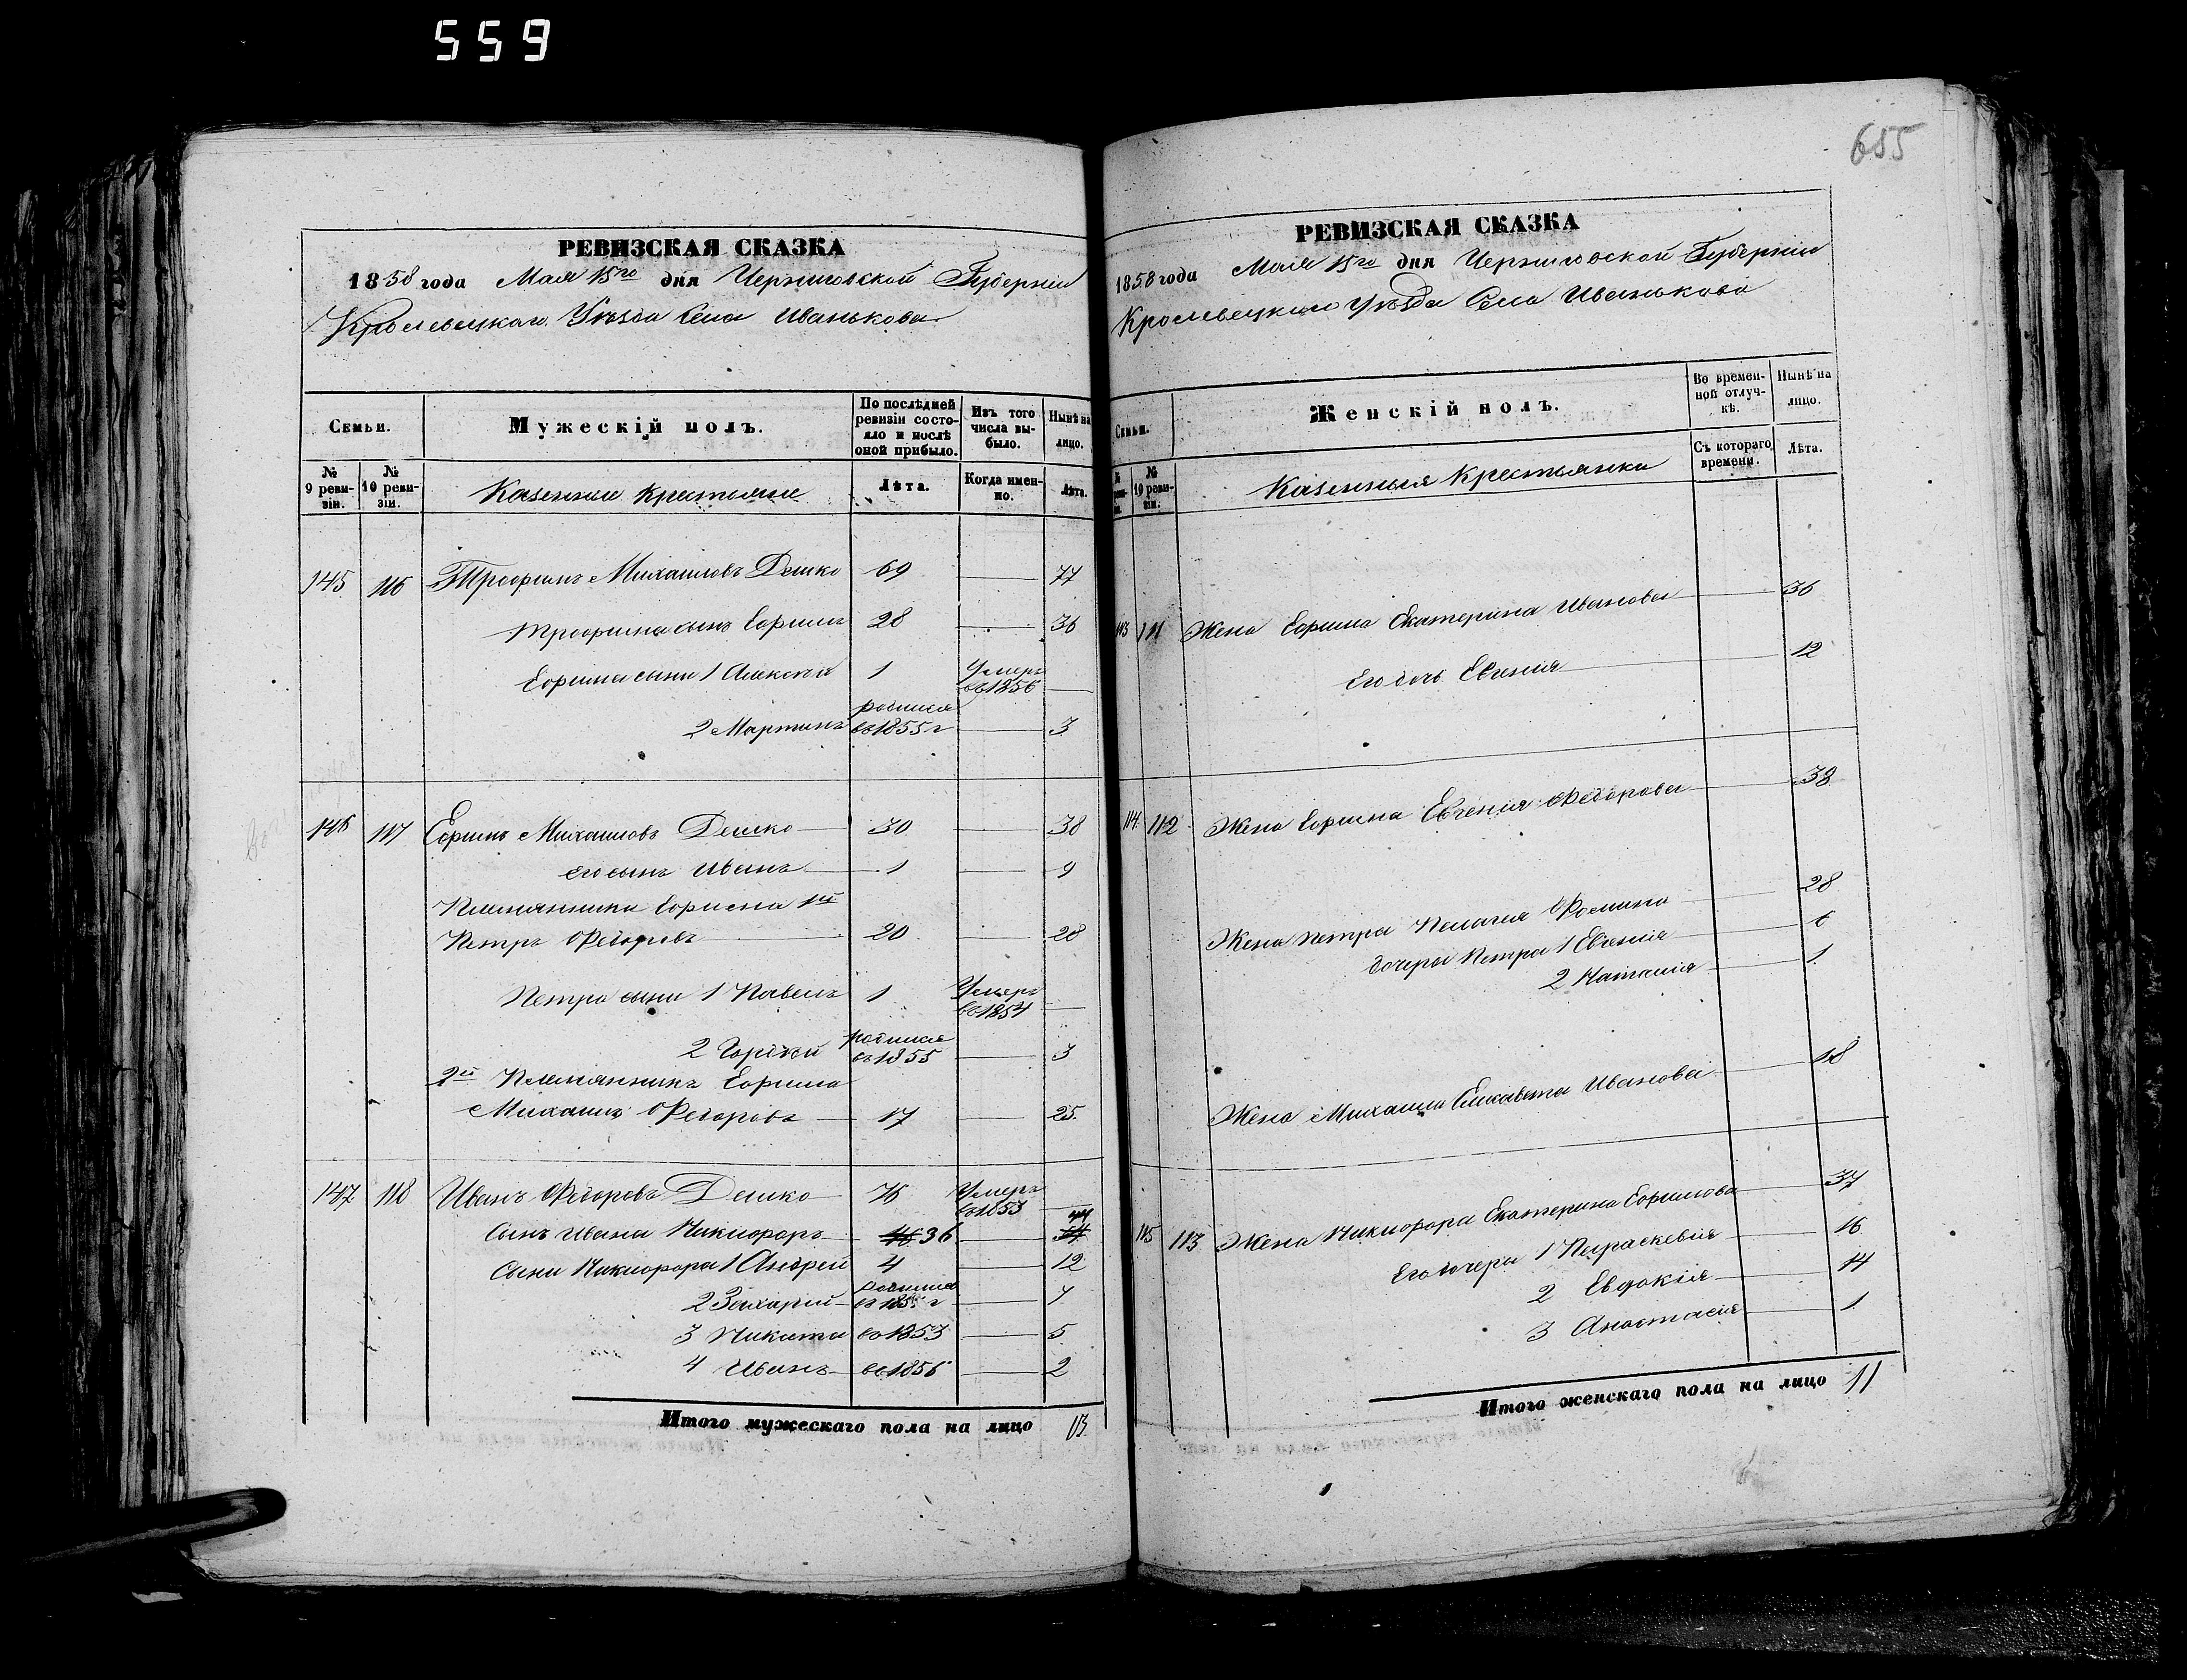 559
655
РЕВИЗСКАЯ СКАЗКА
1858 года Мая 15го дня Черниговской Губерніи
Кролевецкаго Уѣзда Села Иванькова
Семьи.
Мужескій полъ.
По послѣдней ревизіи состояло и послѣ оной прибыло.
Изъ того числа выбыло.
Нынѣ на лицо.
№ 9 ревизіи.
№ 10 ревизіи.
Казенные крестьяне
Лѣта.
Когда именно.
Лѣта.
145 116 Трофимъ Михайловъ Дешко 69 77
Трофима сынъ Ефимъ 28 36
Ефима сыны 1 Алексѣй 1 Умеръ въ 1856
2 Мартинъ родился въ 1855 г 3
146 117 Ефимъ Михайловъ Дешко 30 38
его сынъ Иванъ 1 9
Племянники Ефима 1й
Петръ Ѳедоровъ 20 28
Петра сыны 1 Павелъ 1 Умеръ въ 1854
2 Гордѣй родился въ 1855 3
2й Племянникъ Ефима
Михаилъ Ѳедоровъ 17 25
147 118 Иванъ Ѳедоровъ Дешко 76 Умеръ въ 1853
Сынъ Ивана Никифоръ 36 44
Сыны Никифора 1 Андрей 4 12
2 Захарій родился 7
3 Никита въ 1853 5
4 Иванъ въ 1856 2
Итого мужескаго пола на лицо 13
РЕВИЗСКАЯ СКАЗКА
1858 года Мая 15го дня Черниговской Губерніи
Кролевецкаго Уѣзда Села Иванькова
Семьи.
Женскій полъ.
Во временной отлучкѣ.
Нынѣ на лицо.
№ 10 ревизіи.
Казенныя Крестьянки
Съ котораго времени.
Лѣта.
113 111 Жена Ефима Екатерина Иванова 36
Его дочь Евгенія 12
114 112 Жена Ефима Евгенія Ѳедорова 38
Жена Петра Пелагея Ѳомина 28
дочери Петра 1 Евгенія 6
2 Наталія 1
Жена Михаила Елисавета Иванова 18
115 113 Жена Никифора Екатерина Ефимова 37
Его дочери 1 Параскевія 16
2 Евдокія 14
3 Анастасія 1
Итого женскаго пола на лицо 11